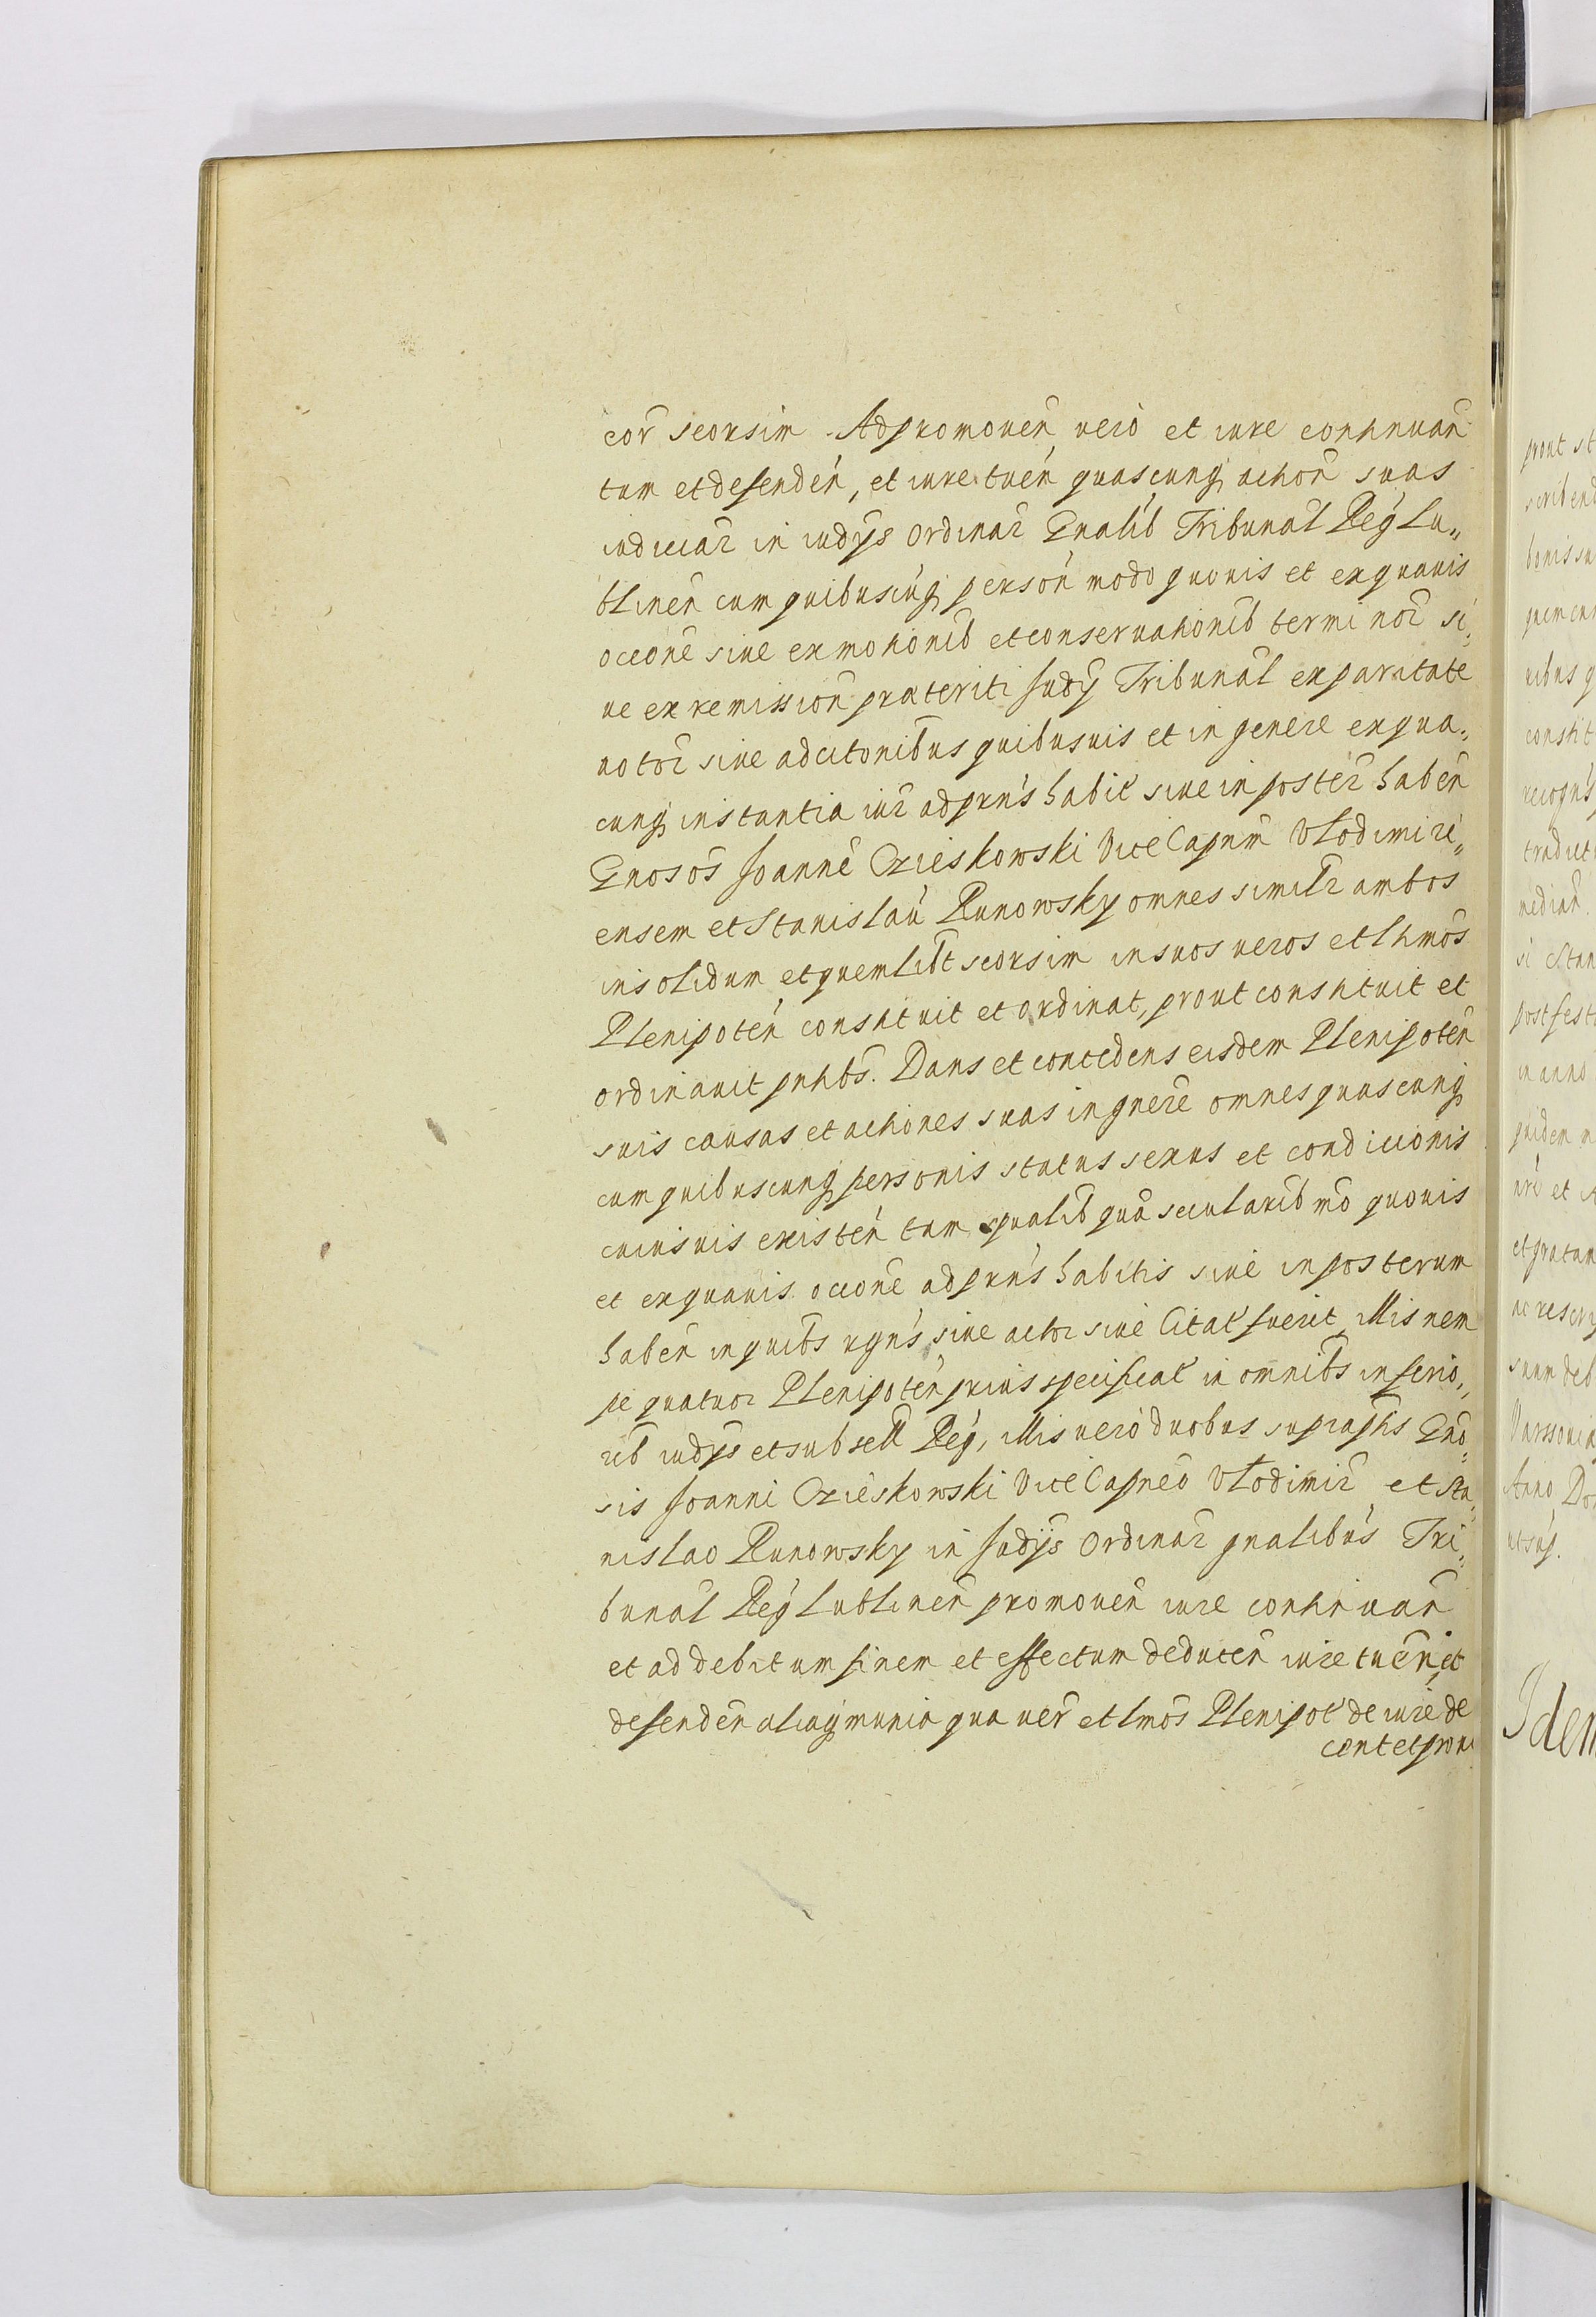 eor̃ seorsim. Ad promouen̄ uero et iure continuan̄
tum et defenden̄, et iure tuen̄ quascunq̢ action̄ suas
iudiciar̃ in iudÿs ordinar̃ Gnalib̃ Tribunal̃ Reg̃ Lu„
blinen̄ cum quibuscunq̢ person̄ modo quouis et ex quauis
occōne siue ex motionib̃ et conseruationib̃ terminor̃ si„
ue ex remission̄ præteriti Judÿ Tribunal̃ ex paritate
uotor̃ siue ad citonibus quibusuis et in genere ex qua„
cunq̢ instantia iur̃ ad prn̄s habit̃ siue in poster̃ haben̄
Gnosos̃ Joannē Ozieskowski Vice Capnm̃ Vlodimiri„
ensem et Stanislaū Runowsky omnes simul̃r ambos
insolidum et quemlib̃t seorsim in suos ueros et lthmos̃
Plenipoten̄ constituit et ordinat, prout constituit et
ordinauit pnhb̃s. Dans et concedens eisdem Plenipoten̄
suis causas et actiones suas in gnere omnes quascunq̢
cum quibuscunq̢ personis status sexus et condicionis
cuiusuis existen̄ tam spualib̃ quā secularib̃ mō quouis
et ex quauis occōne ad prn̄s habitis siue in posterum
haben̄ in quib̃s rgn̄s siue actor siue Citat̃ fuerit, Illis nem
pe quatuor Plenipoten̄ prius specificat̃ in omnib̃s inferio„
rib̃ iudÿs et subsell̃ Reg̃, Illis uero duobus suprap̃tis Gno„
sis Joanni Ozieskowski Vice Capneo Vlodimir̃ et Sta„
nislao Runowsky in Judÿs Ordinar̃ gnalibūs Tri„
bunal̃ Reg̃ Lublinen̄ promouen̄ iure continuan̄
et ad debitum finem et effectum deducen̄ iure tuen̄ et
defenden̄ aliaq̢ munia quæ uer̃ et ltmos̃ Plenipot̃ de iure de
cent et proni